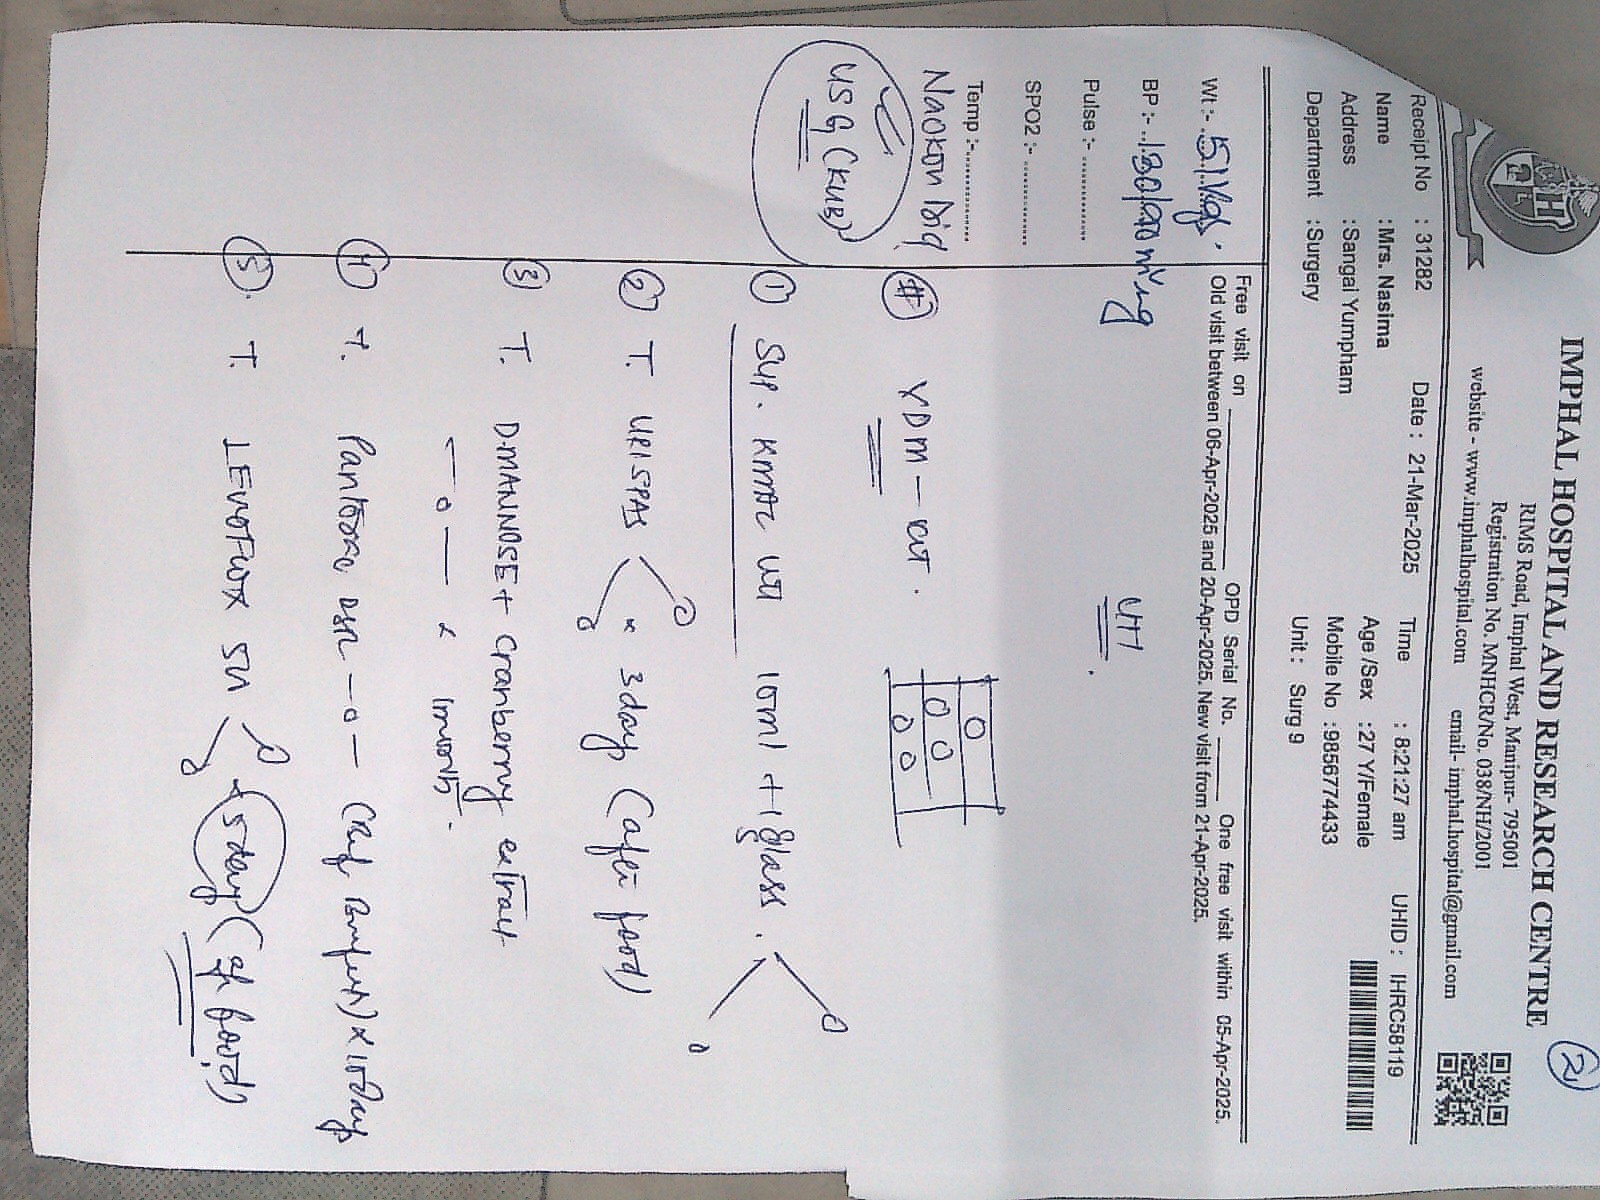 IMPHAL HOSPITAL AND RESEARCH CENTRE
RIMS Road, Imphal West, Manipur- 795001
Registration No. MNHCR/No. 038/NH/2001
website - www.imphalhospital.com email- imphal.hospital@gmail.com
2
Receipt No : 31282 Date : 21-Mar-2025 Time : 8:21:27 am UHID : IHRC58119
Name : Mrs. Nasima Age /Sex : 27 Y/Female
Address : Sangai Yumpham Mobile No : 9856774433
Department : Surgery Unit : Surg 9
Free visit on OPD Serial No. One free visit within 05-Apr-2025.
Old visit between 06-Apr-2025 and 20-Apr-2025. New visit from 21-Apr-2025.
Wt :- 51 kgs.
BP :- 130/90
Pulse :-
SPO2 :-
Temp :-
UTI
USG (KUB)
① Syp. KMAC UTI 10ml + 1 glass.
② T. URISPAS x 3day (after food)
③ T. D-MANNOSE + Cranberry extract
x 1month.
④ T. DSR x 10day
⑤ T. x 5day (aft food)